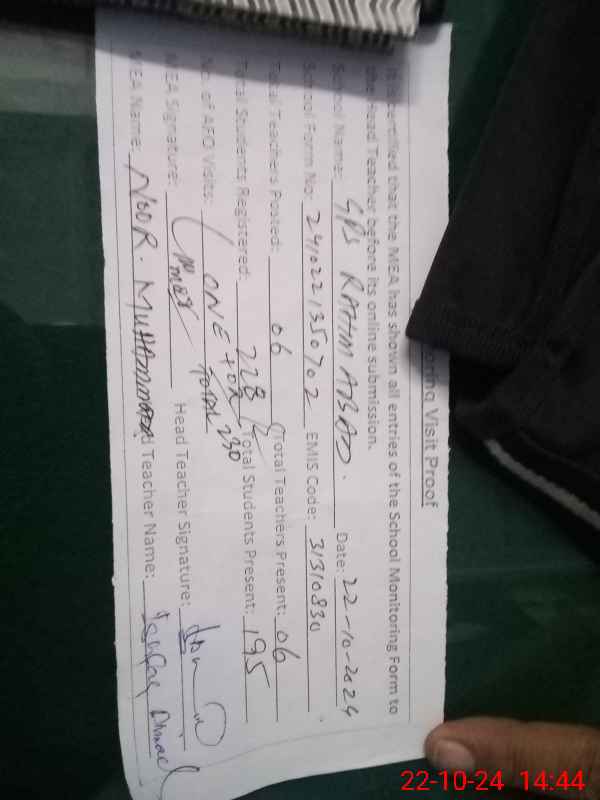 oring Visit Proof
It is certified that the MEA has shown all entries of the School Monitoring Form to
the Head Teacher before its online submission.
School Name: GPS RAHIM ABAD. Date: 22-10-2024
School Form No: 2410221350702 EMIS Code: 31310830
Total Teachers Posted: 06 Total Teachers Present: 06
Total Students Registered: 228 Total Students Present: 195
TOTAL 230
No. of AEO Visits: ONE
MEA Signature: Head Teacher Signature:
MEA Name: NOOR. MUHAMMAD d Teacher Name: Ahmad
22-10-24 14:44